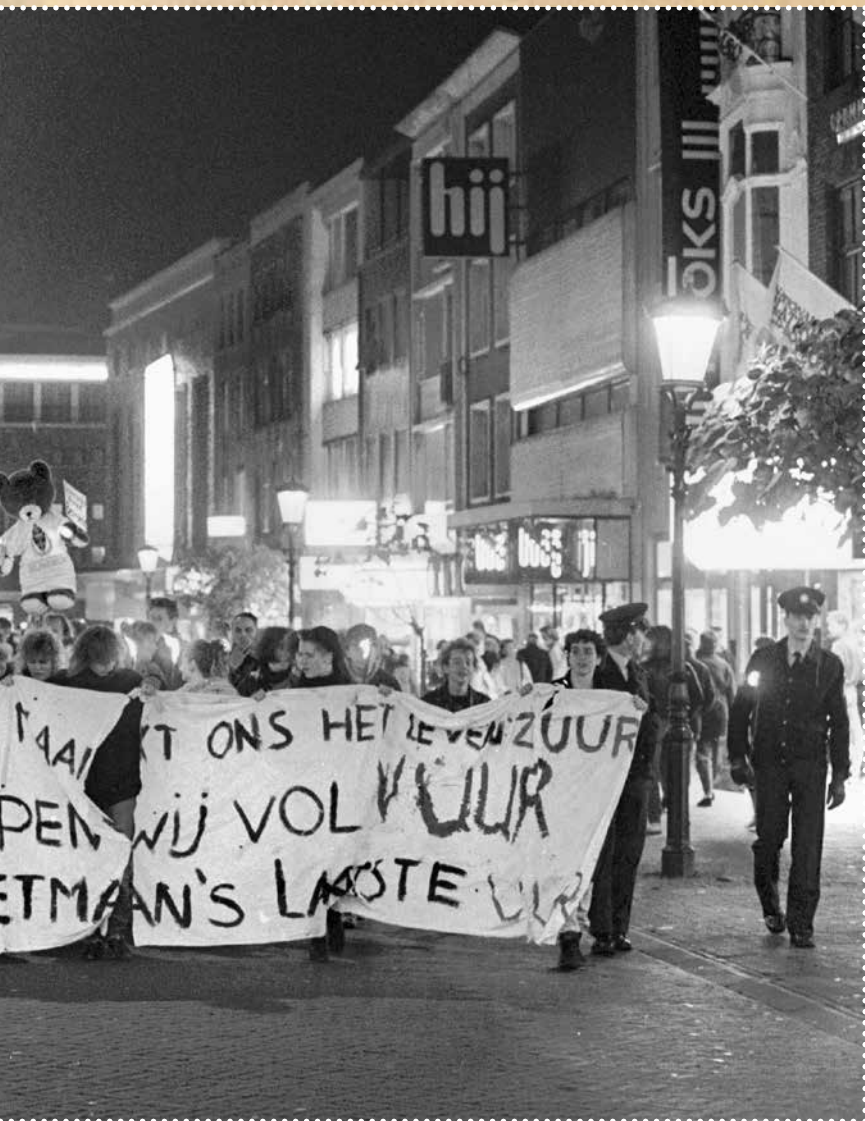 hij
OKS
hij
MAAKT ONS HET LEVEN ZUUR
PEN WIJ VOL VUUR
ETMAN'S LAATSTE UUR